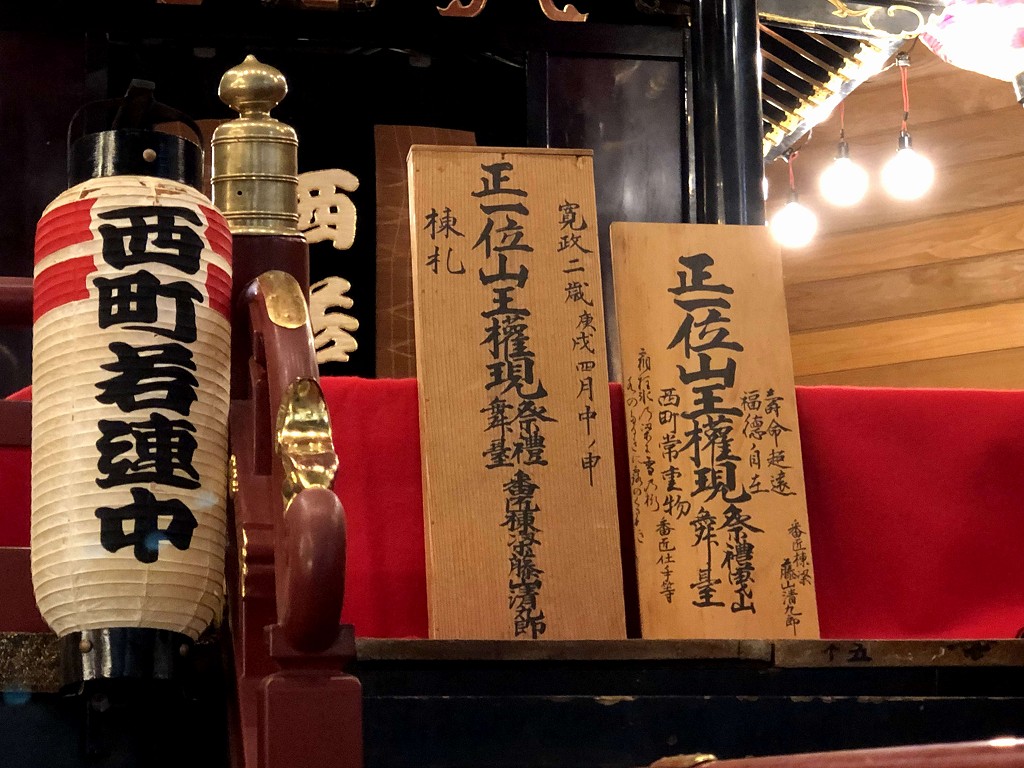 西町若連中
西若
寛政二歳庚戌四月中ノ申
正一位山王權現祭禮舞臺
棟札
番匠棟梁藤山清九郎
壽命超遠
福德自在
正一位山王權現祭禮
舞臺
西町常重物
番匠棟梁
藤山清九郎
番匠仕手等
五